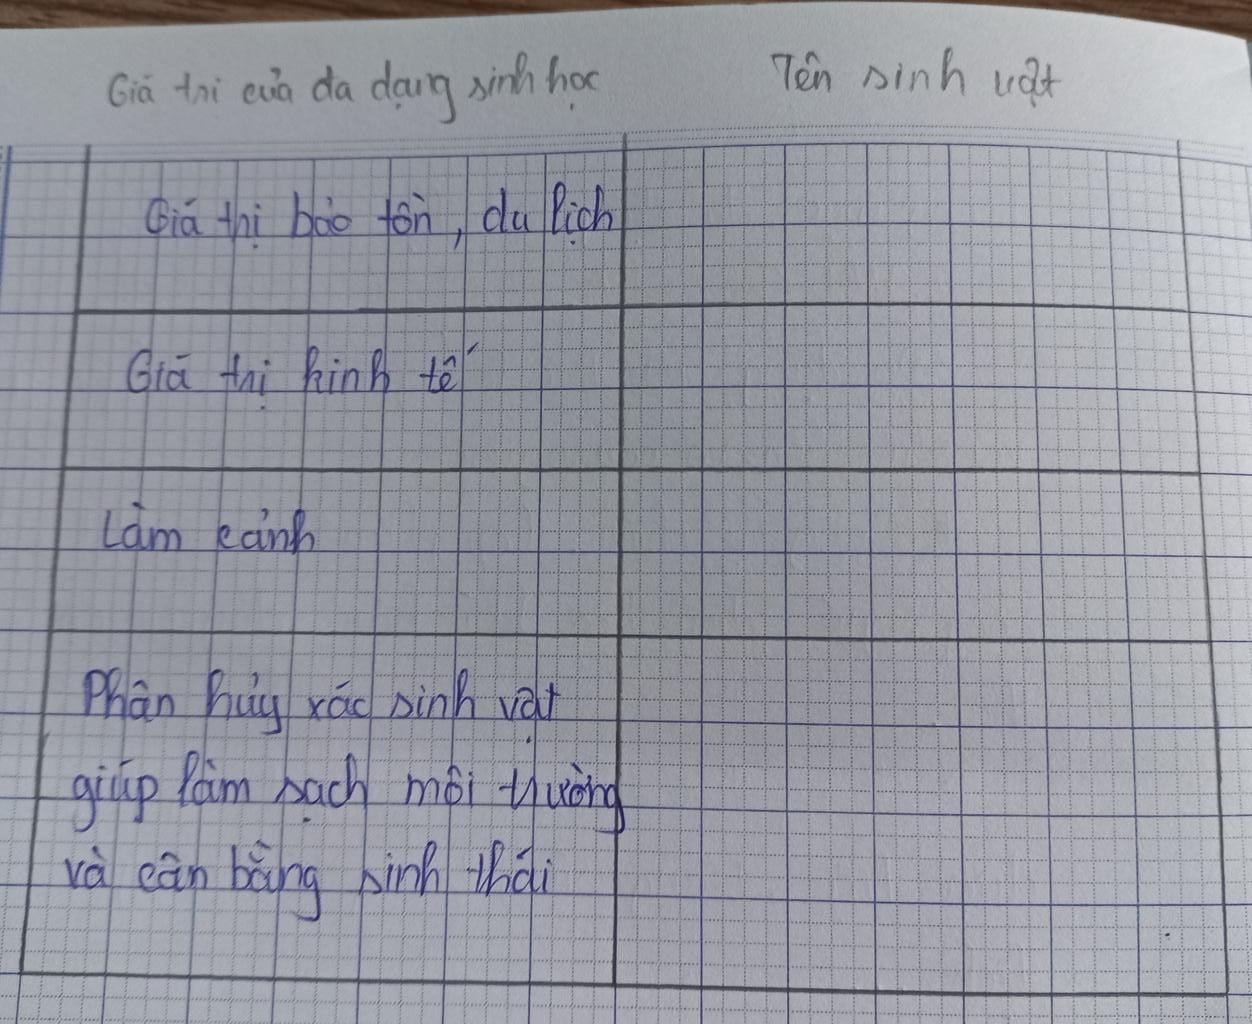 Giá trị của đa dạng sinh học
Tên sinh vật
Giá trị bảo tồn, du lịch
Giá trị kinh tế
Làm cảnh
Phân hủy xác sinh vật
giúp làm sạch môi trường
và cân bằng sinh thái